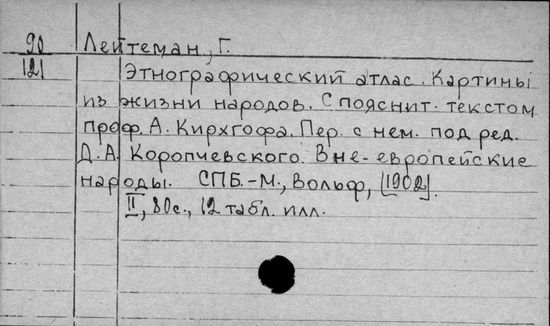 90 Лейтеман, Г.
121 Этнографический атлас. Картины
из жизни народов. С пояснит. текстом
проф. А. Кирхгофа. Пер. с нем. под ред.
Д.А. Коропчевского. Вне-европейские
народы. СПБ.-М., Вольф, [1902].
II, 80с., 12 табл. илл.